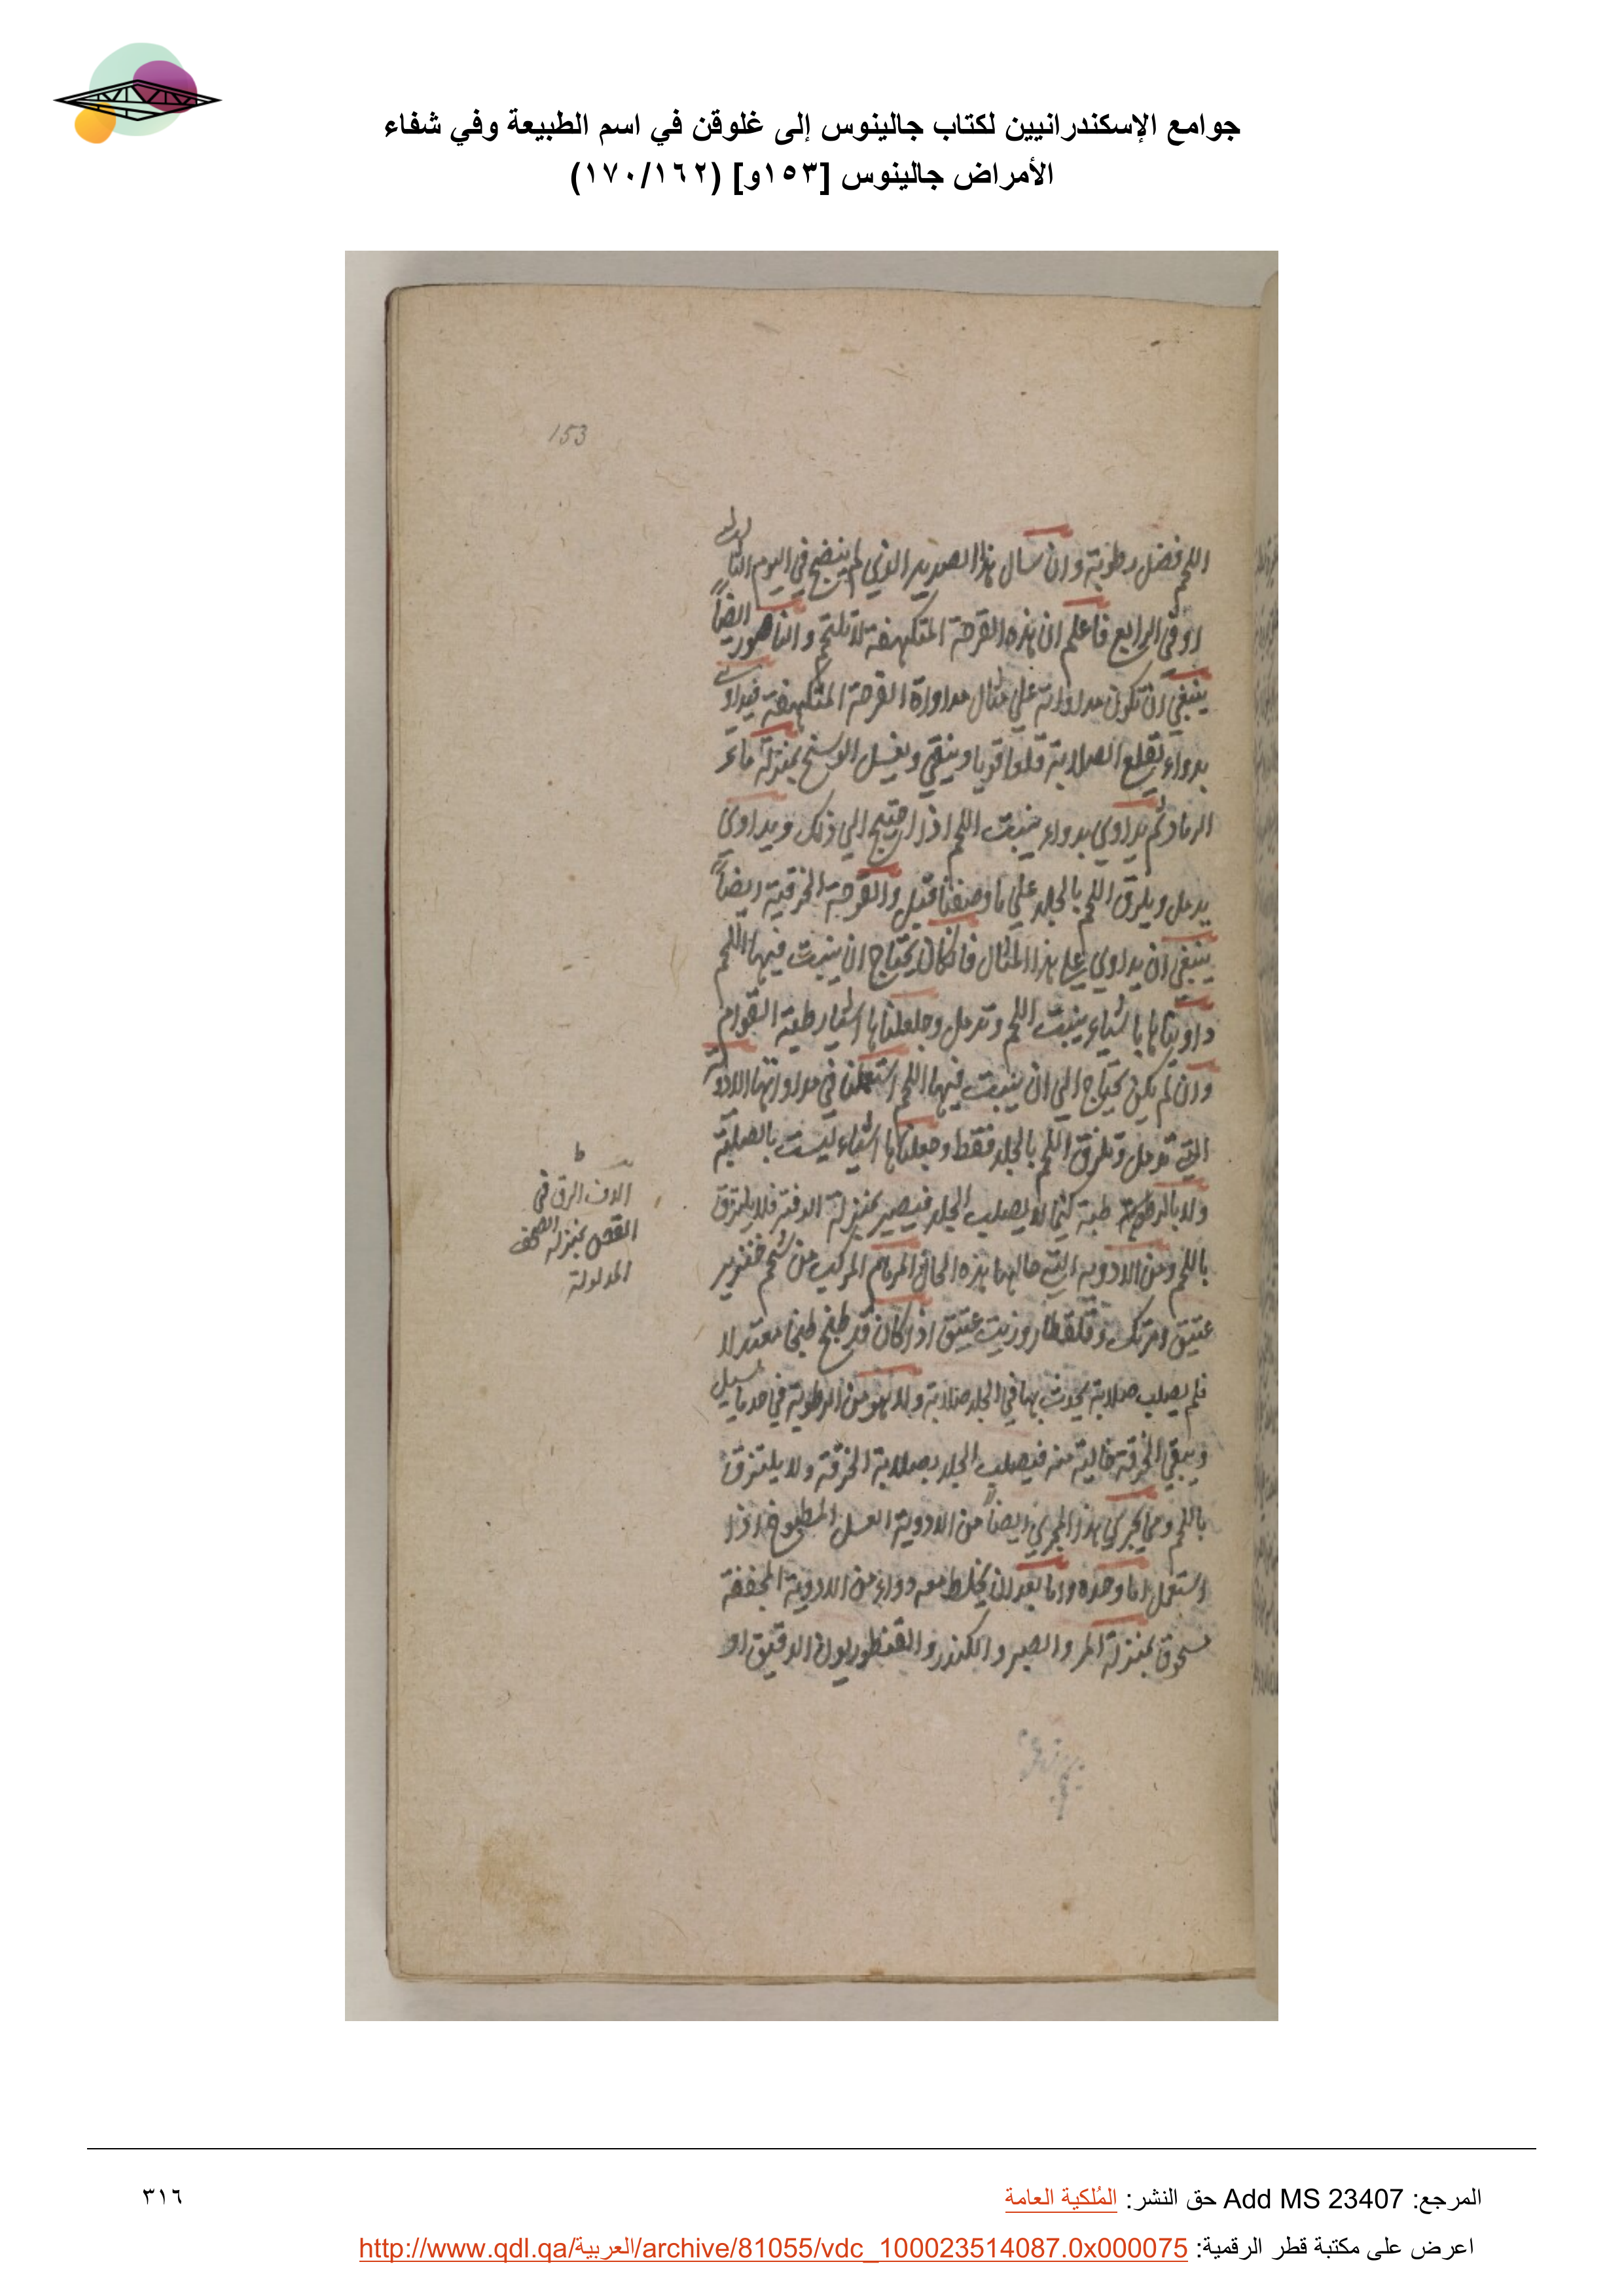 جوامع الإسكندرانيين لكتاب جالينوس إلى غلوقن في اسم الطبيعة وفي شفاء
الأمراض جالينوس [١٥٣و] (١٧٠/١٦٢)
153
اللحم فضل رطوبة وان سال هذا الصديد الذي لم ينضج في اليوم الثالث
او في الرابع فاعلم ان هذه القرحة المتكهفة لا تلتحم والناصور ايضاً
ينبغي ان تكون مداواته علي مثال مداواة القرحة المتكهفة فيداوي
بدواء يقلع الصلابة قلعا قويا وينقي ويغسل الوسخ بمنزلة ماء
الرماد ثم يداوي بدواء ينبت اللحم اذا احتيج الي ذلك ويداوي
يدمل ويلزق اللحم بالجلد علي ما وصفنا قبل والقرحة الخزفية ايضاً
ينبغي ان يداوي علي هذا المثال فان كان يحتاج ان ينبت فيها اللحم
داويناها باشياء ينبت اللحم وتدمل وجعلناها اشياء رطبة القوام
وان لم يكن يحتاج الي ان ينبت فيها اللحم استعملنا في مداواتها الادوية
التي تدمل وتلزق اللحم بالجلد فقط وجعلناها اشياء ليست بالصلبة
ولا بالرطوبة طبة كيما لا يصلب الجلد فيصير بمنزلة الدفتر فلا يلتزق
باللحم ومن الادوية التي حالها هذه الحال المرهم المركب من شحم خنزير
عتيق ومرتك وقلقطار وزيت عتيق اذا كان قد طبخ طبخا معتدلا
فلم يصلب صلابة يحدث بها في الجلد صلابة ولا هو من الرطوبة في حد ما يسيل
ويبقي الخرقة خالية منه فيصلب الجلد بصلابة الخرقة ولا يلتزق
باللحم ومما يجري هذا المجري ايضاً من الادوية العسل المطبوخ اذا
استعمل اما وحده واما بعد ان يخلط معه دواء من الادوية المجففة
مسحوقا بمنزلة المر والصبر والكندر والقنطوريون الدقيق او
ط
الرق في
بمنزلة الصحف
المرجع: Add MS 23407 حق النشر: المُلكية العامة
٣١٦
اعرض على مكتبة قطر الرقمية: http://www.qdl.qa/العربية/archive/81055/vdc_100023514087.0x000075